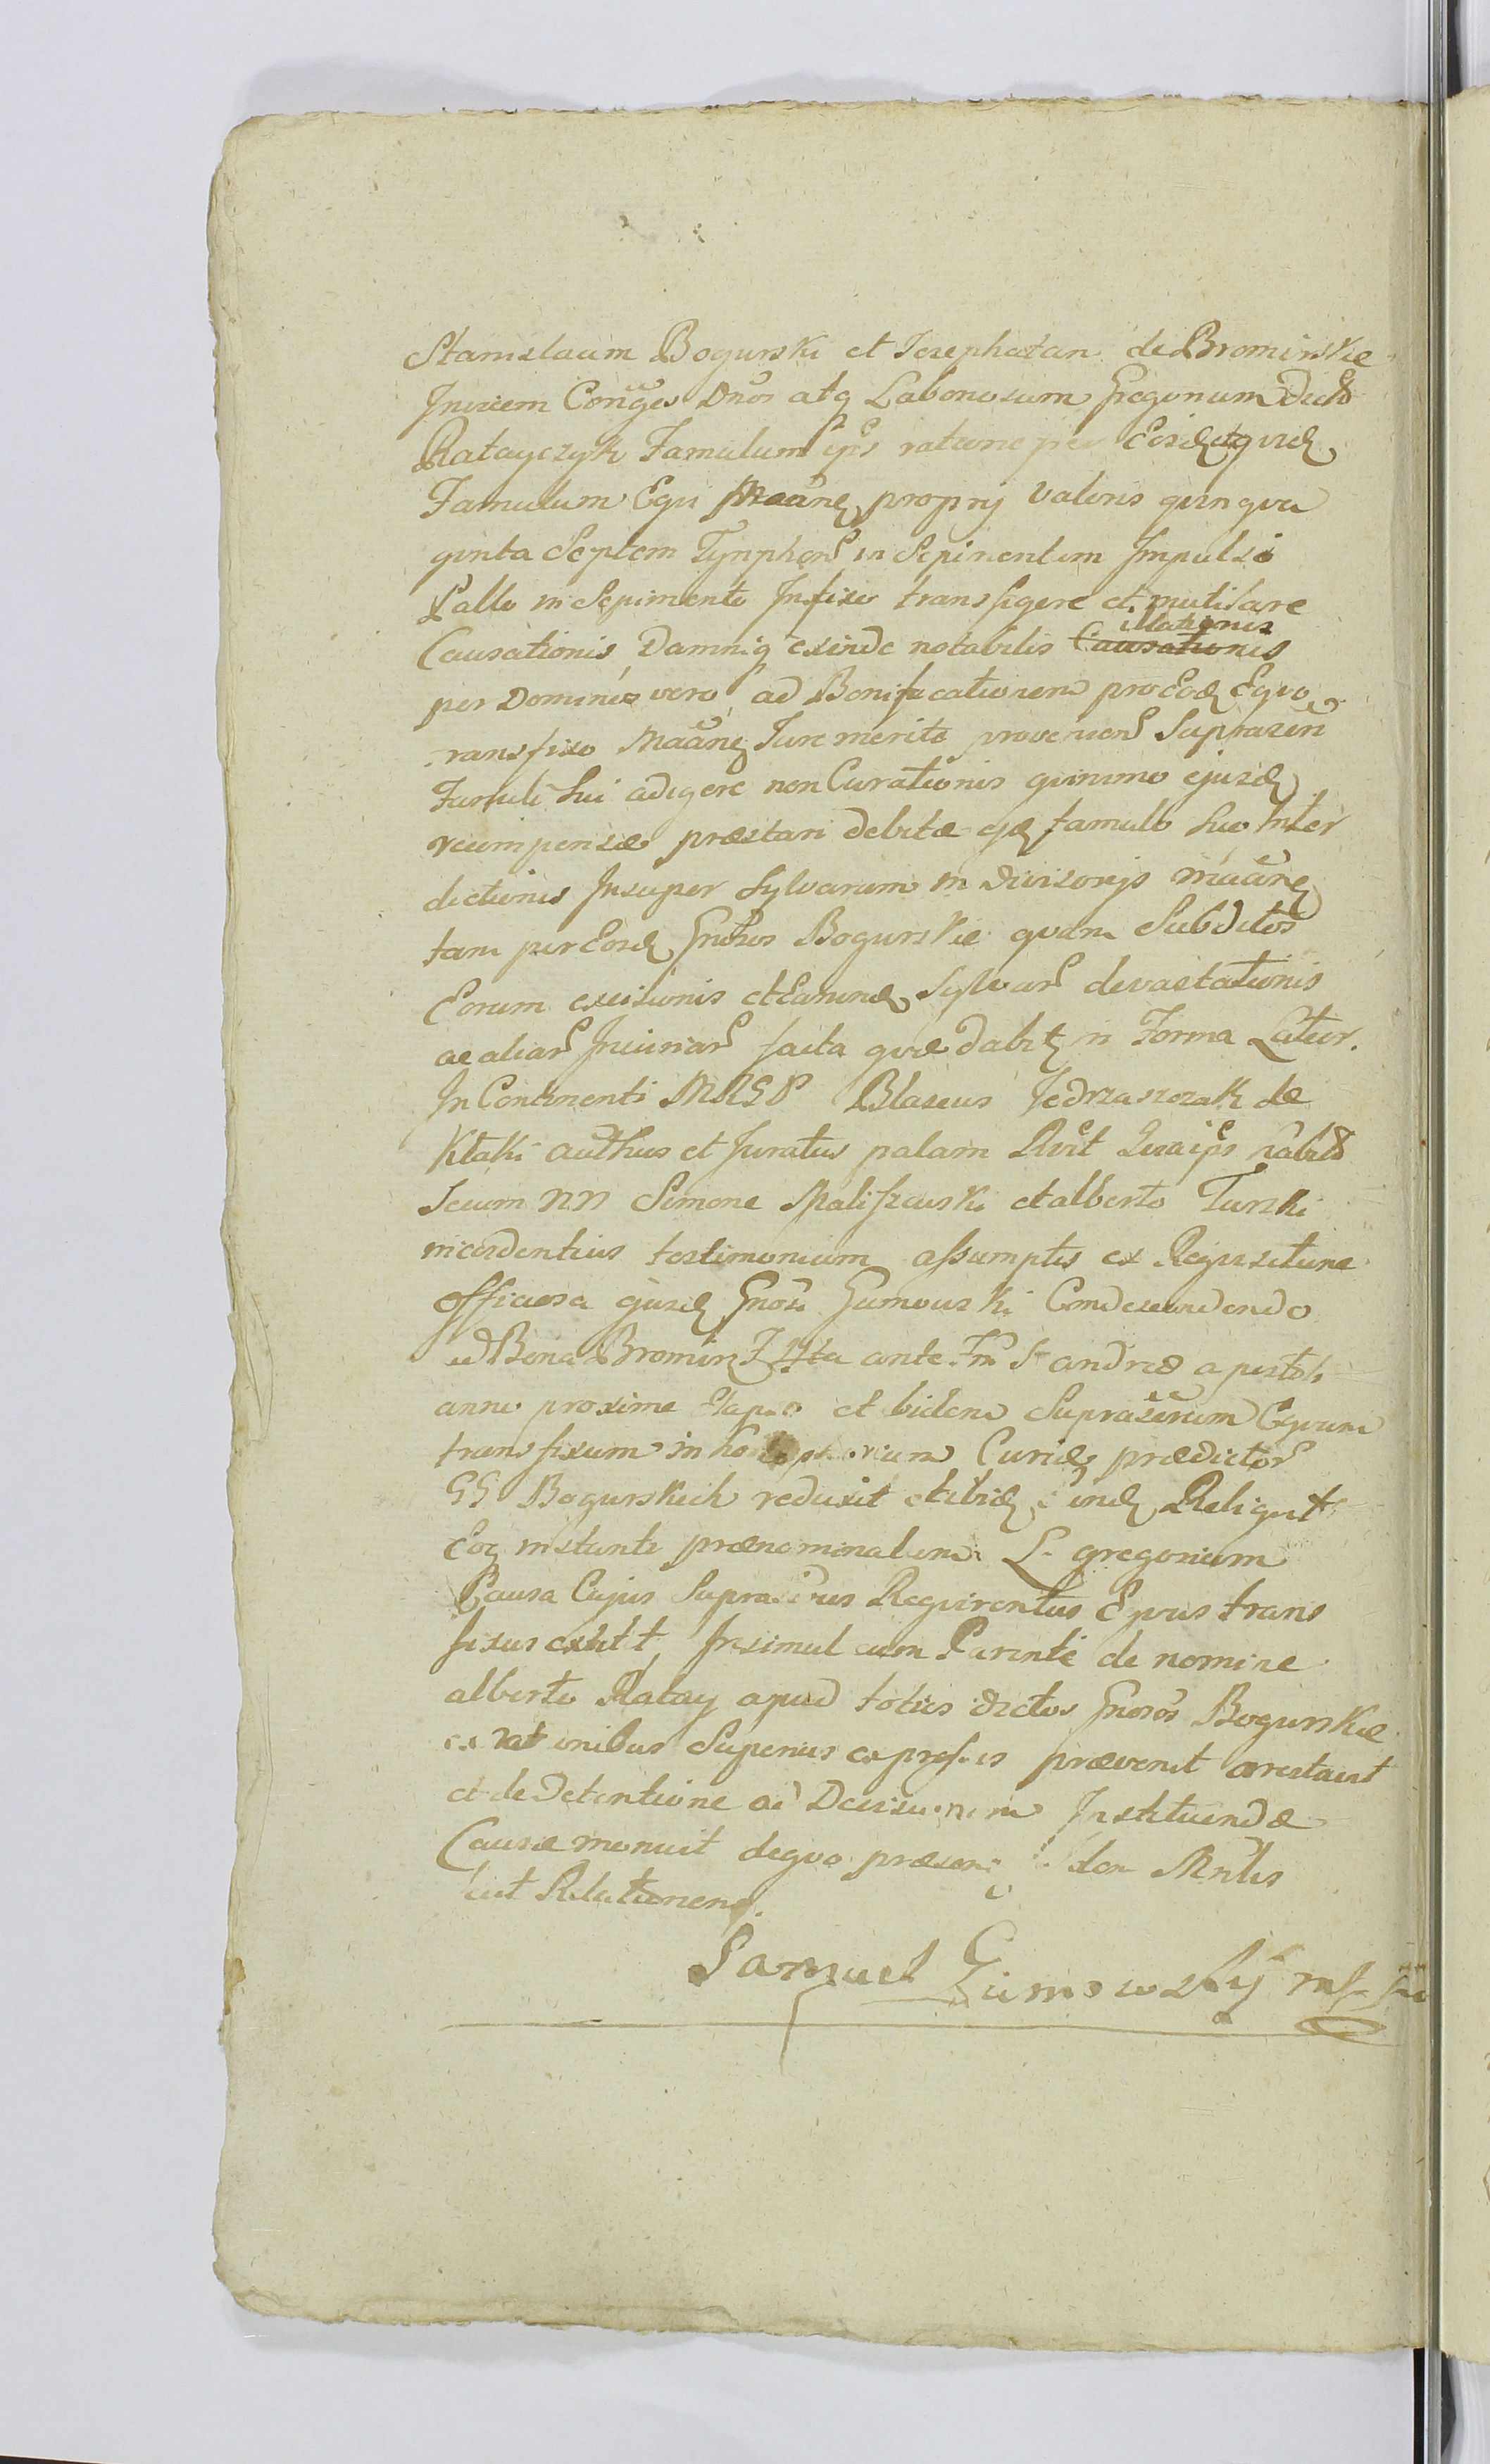 Stanislaum Bogurski et Josephatan de Bromirskie
Invicem Conges Dnos atq Laboriosum Gregorium Dict
Ratayczyk Famulum ips ratione per Eosdq
Famulum Equi Maane proprij Valoris quinqua
ginta Septem Tynphor in Sepimentum Impulsi
Pallo in Sepimento Infixo transfigere et mutilare
Causationis Damniq exinde notabilis Causationis illationis
per Dominos vero ad Bonificationem pro Eod Equo
transfixo Maane Jure merito provenien Suprascri
Famuli Sui adigere non Curationis quinimo ejusd
recompensæ præstari debitæ famulo suo Inter
dictionis Insuper Sylvarum in divisorijs maane
tam per Eosd Gnosos Bogurskie quam Subditos
Eorum excisionis et Earund Sylvar devastationis
ac aliar Injuriar facta quæ dabit in Forma Latior.
In Continenti MRGP Blasius Jedrzaszczak de
Ktaki authus et Juratus palam Rvit Quia ips habit
Secum NN Simone Maliszewski et alberto Turski
incedentius testimonium assumptis ex Requisitione
officiosa Gnosi Gumowski Condescendendo
ad Bona Bromirz Fta ante Fm S andreæ apostoli
anni proxime Elapso et biden Suprascrum Equum
transfixum in Curiæ prædictor
GG Bogurskich reduxit et ibid Reliquit
Eoq instanti prænominatum L. gregorium
Causa Cujus Suprascrus Requirentis Equus trans
fixus extitit, Insimul cum Parente de nomine
alberto Ratay apud toties dictos Gnosos Bogurskie
ex rationibus Superius expressis prævenit arestavit
et de Detentione ad Decisionem Instituendæ
Causæ monuit de quo præsen Mnlis
Relationem.
Samuel Gumowskij mp